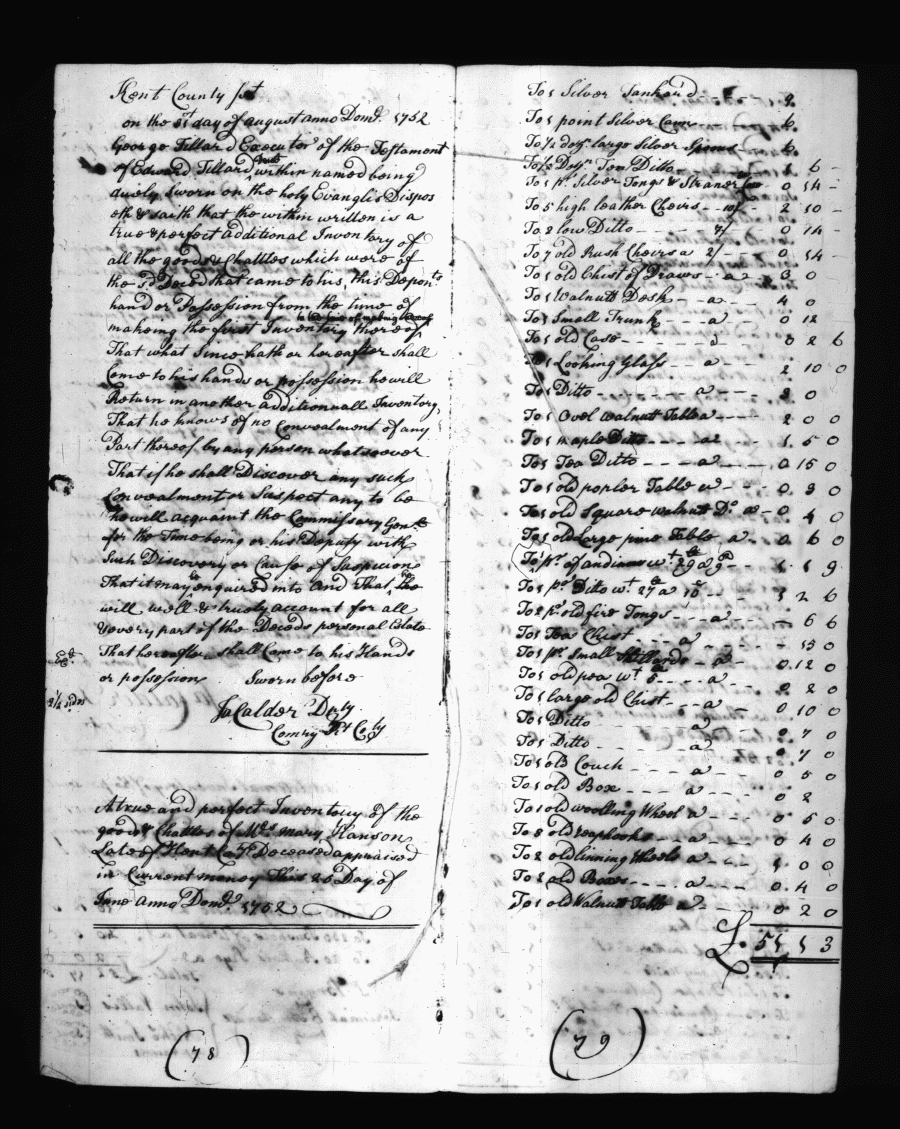 Kent County sct
on the 31st day of august anno Domi. 1752
George Tillard Executor of the Testament
of Edward Tillard within named being
duely Sworn on the holy Evanglis Dispos
eth & saith that the within written is a
true & perfect additional Inventory of
all the goods & Chattles which were of
the sd Deced that came to his, this Deponts
hand or Possession from the time of
makeing the first Inventory thereof
That what Since hath or hereafter shall
Come to his hands or possession he will
Return in another additionnall Inventory,
That he knows of no Convealment of any
Part thereof by any person whatsoever
That if he shall Discover any such
Convealment or Suspect any to be
he will acquaint the Commissary Genll
for the Time being or his Deputy with
Such Discovery or Cause of Suspicion
That it may be enquired into and That he
will well & truely account for all
& every part of the Deceds personal Estate
That hereafter shall Come to his Hands
or possession Sworn before
Ja Calder Dpty
Comry Kt Coty
2 1/2 sides
A true and perfect Inventory of the
goods & Chattles of Mrs Mary Hanson
Late of Kent Coty Deceased appraised
in Current money This 25 Day of
June anno Domi. 1752
(78)
To 1 Silver Tankard 9
To 1 point Silver Cann 6
To 1/2 dozn large Silver Spoons 6
To 1/2 Dozn Tea Ditto 1 6
To 1 pr Silver Tongs & Straner 0 14
To 5 high leather Cheirs 10/ 2 10
To 2 low Ditto 7/ 0 14
To 7 old Rush Cheirs a 2/ 0 14
To 1 old Chest of Draws a 3 0
To 1 Walnutt Desk a 4 0
To 1 Small Trunk a 0 12
To 1 old Case 0 2 6
To 1 Looking Glass a 2 10 0
To 1 Ditto a 2 0
To 1 Ovel walnut Table a 2 0 0
To 1 maple Ditto a 1 5 0
To 1 Tea Ditto a 0 15 0
To 1 old popler Table a 0 3 0
To 1 old Square walnut Do a 0 4 0
To 1 old Large pine Table a 0 6 0
To 1 pr of andirons wt 29 a 9d 1 1 9
To 1 pr Ditto wt 27 a 10 1 2 6
To 2 pr old fire Tongs a 6 6
To 1 Tea Chist a 15 0
To 1 pr Small Stillards a 0 12 0
To 1 old pea wt 5 a 0 2 0
To 1 large old Chist a 0 10 0
To 1 Ditto a 0 7 0
To 1 Ditto a 0 7 0
To 1 old Couch a 0 5 0
To 1 old Box a 0 2
To 1 old woolling Wheel a 0 5 0
To 8 old reaphooks a 0 4 0
To 2 old linning Wheels a 1 0 0
To 2 old Boxes a 0 4 0
To 1 old Walnutt Table a 0 2 0
£ 51 1 3
(79)